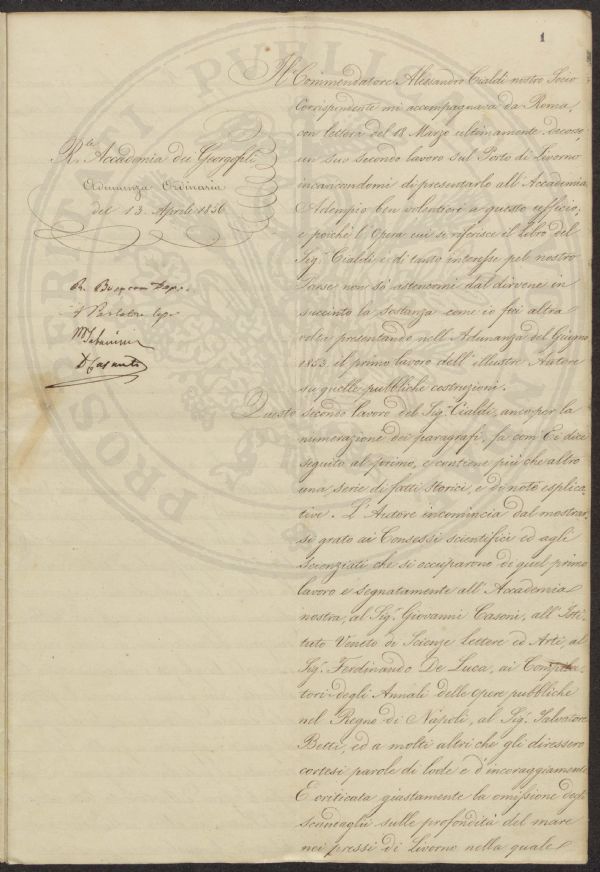 1
R.le Accademia dei Georgofili
Adunanza Ordinaria
del 13. Aprile 1856
Il Commendatore Alessandro Cialdi nostro Socio
Corrispondente mi accompagnava da Roma,
con lettera del 18 Marzo ultimamente decorso,
un suo secondo lavoro sul Porto di Livorno
incaricandomi di presentarlo all'Accademia
Adempio ben volentieri a questo ufficio;
e poichè l'Opera cui si riferisce il Libro del
Sig.r Cialdi è di tanto interesse pel nostro
Paese non sò astenermi dal dirvene in
succinto la sostanza come io feci altra
volta presentando nell'Adunanza del Giugno
1853. il primo lavoro dell'illustre Autore
su quelle pubbliche costruzioni.
Questo secondo lavoro del Sig.r Cialdi, anco per la
numerazione dei paragrafi, fa com'Ei dice
seguito al primo, e contiene più che altro
una serie di fatti storici, e di note esplica
tive. L'Autore incomincia dal mostrar
si grato ai Consessi scientifici ed agli
Scienziati che si occuparono di quel primo
lavoro e segnatamente all'Accademia
nostra, al Sig.r Giovanni Casoni, all'Isti,
tuto Veneto di Scienze Lettere ed Arti, al
Sig.r Ferdinando De Luca, ai Compila,
tori degli Annali delle opere pubbliche
nel Regno di Napoli, al Sig.r Salvatore
Betti, ed a molti altri che gli diressero
cortesi parole di lode e d'incoraggiamento
E criticata giustamente la omissione degli
scandagli sulle profondità del mare
nei pressi di Livorno nella quale
PROSPERITATI PVBLICAE